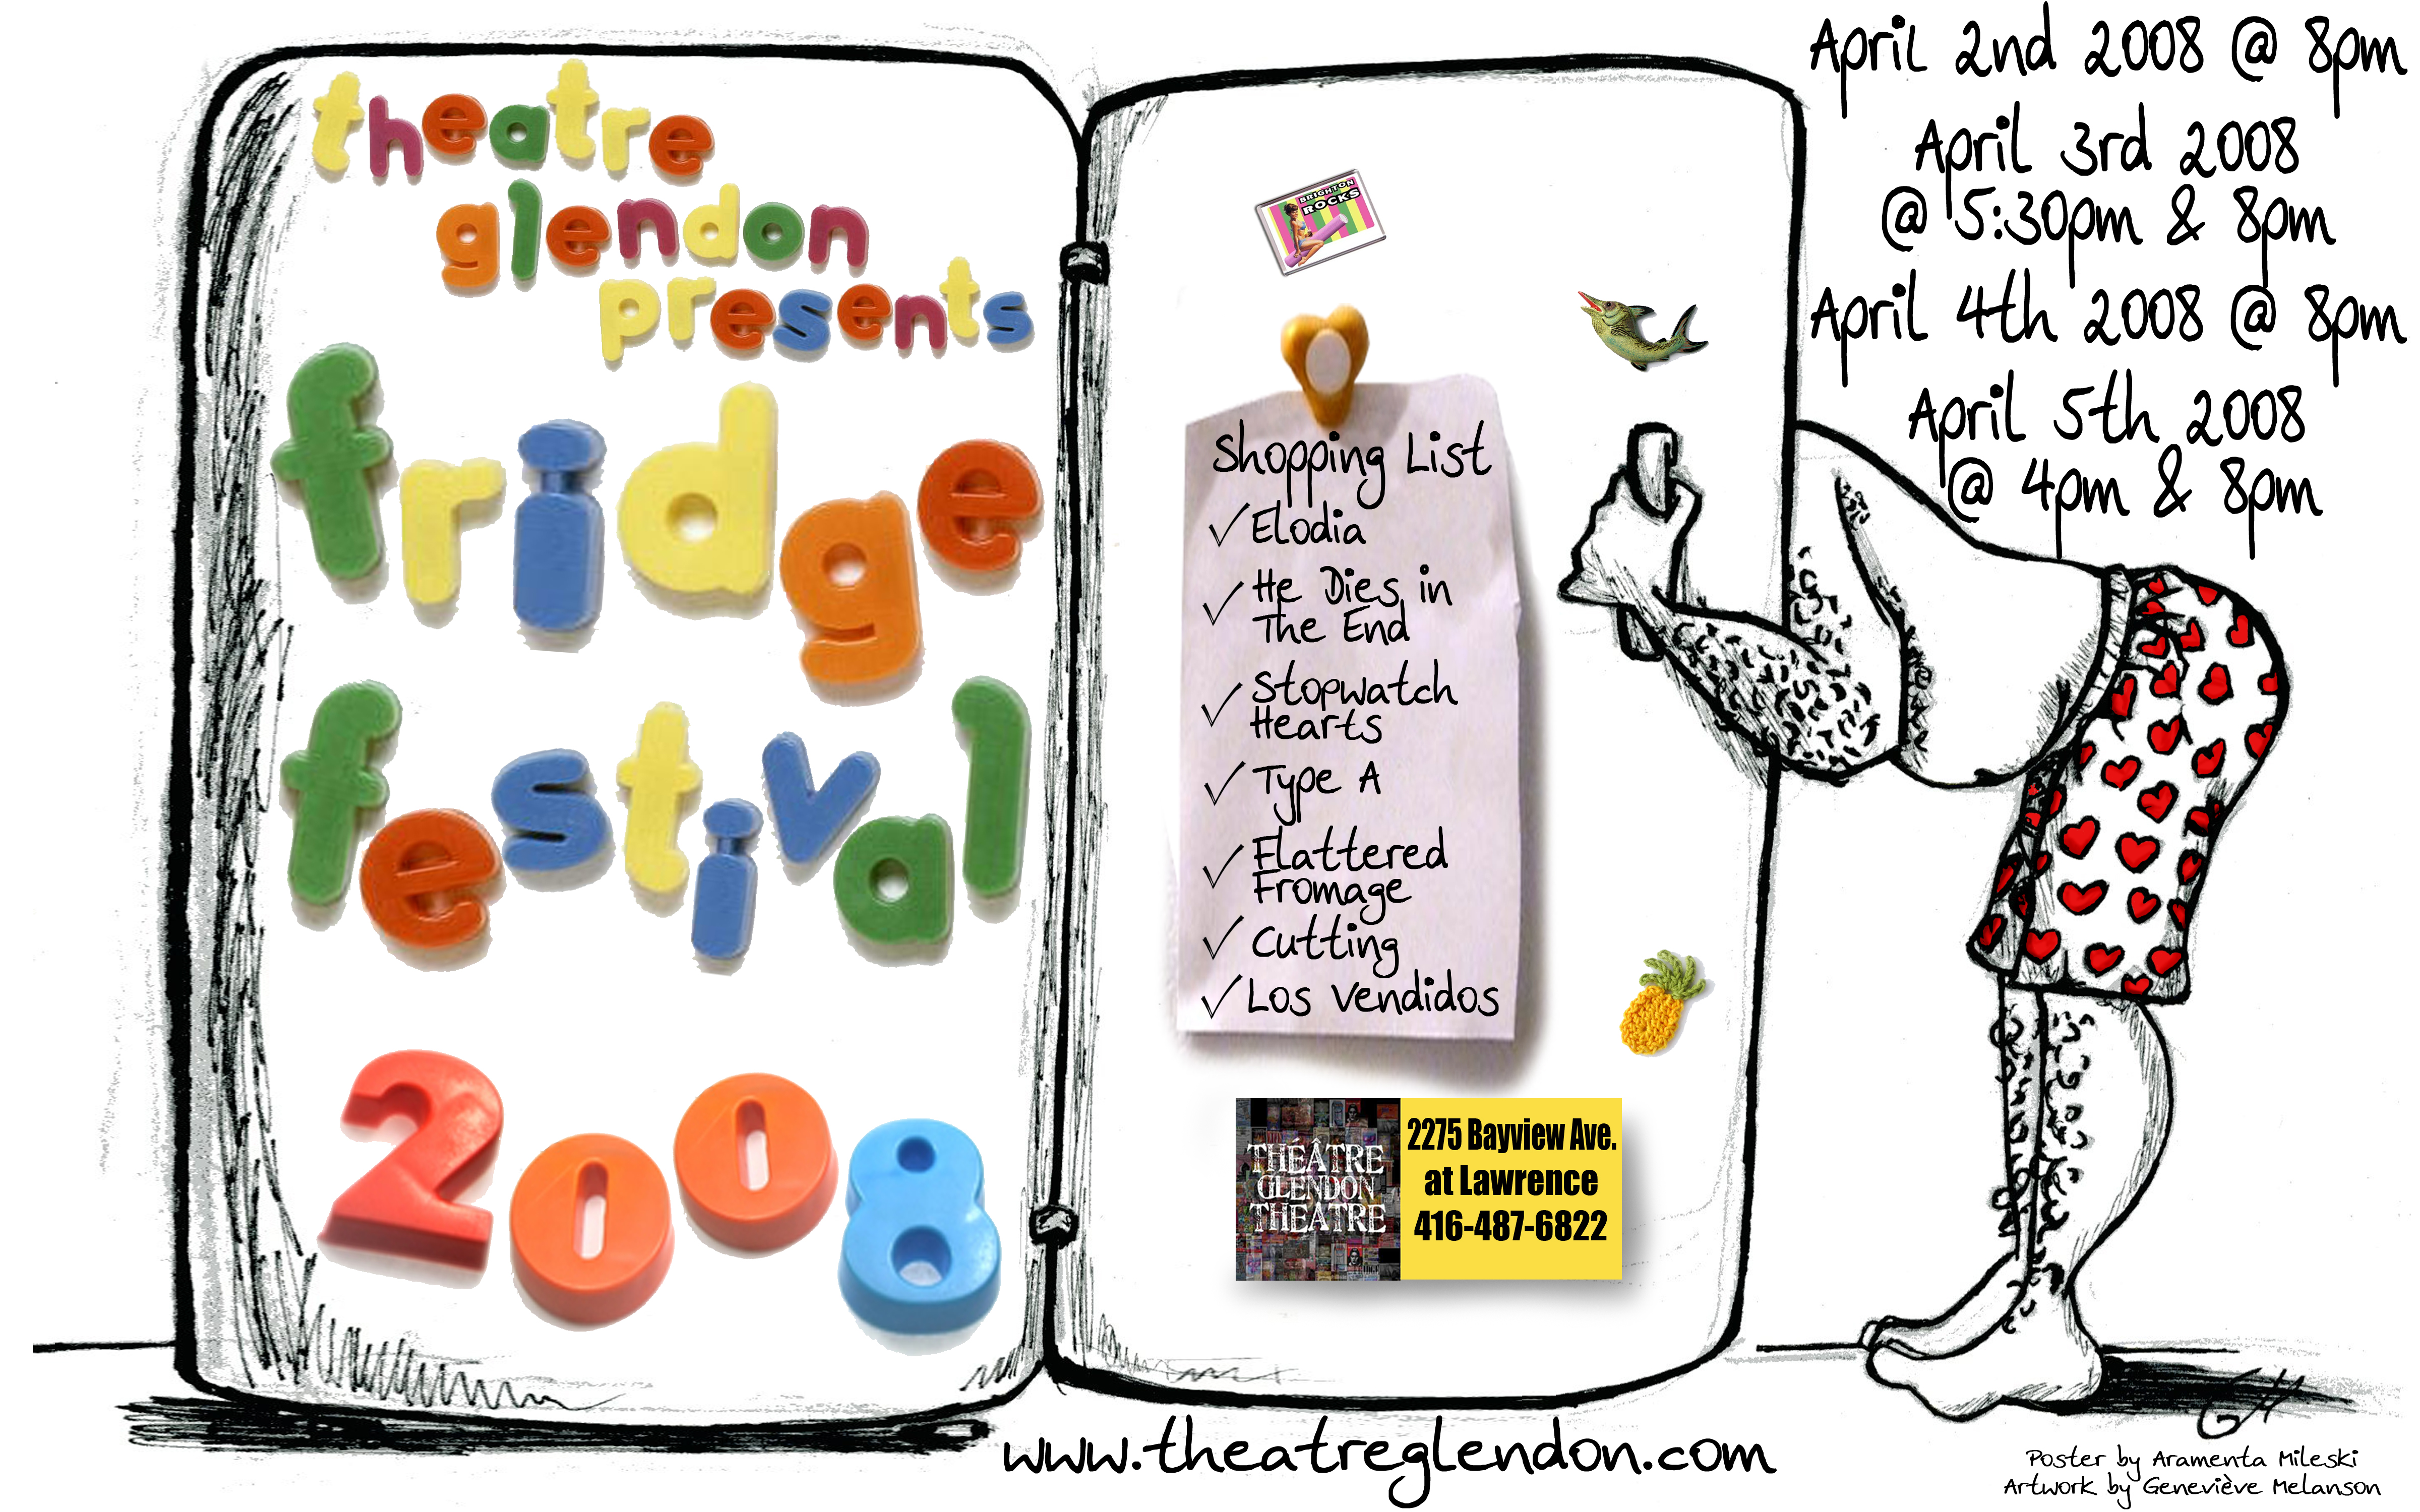 theatre
glendon
presents
fridge
festival
2008
BRIGHTON
ROCKS
Shopping List
✓ Elodia
✓ He Dies in
The End
✓ Stopwatch
Hearts
✓ Type A
✓ Flattered
Fromage
✓ Cutting
✓ Los Vendidos
THÉÂTRE
GLENDON
THEATRE
2275 Bayview Ave.
at Lawrence
416-487-6822
April 2nd 2008 @ 8pm
April 3rd 2008
@ 5:30pm & 8pm
April 4th 2008 @ 8pm
April 5th 2008
@ 4pm & 8pm
www.theatreglendon.com
GM
Poster by Aramenta Mileski
Artwork by Geneviève Melanson